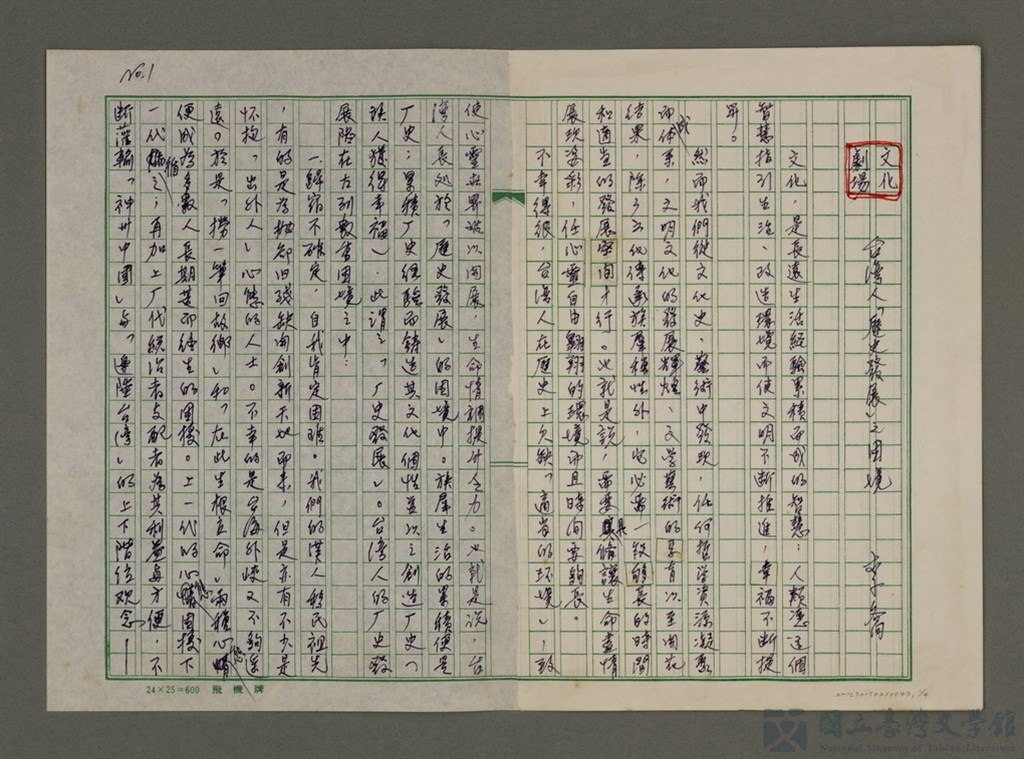 No.1
文化
劇場
台灣人「歷史發展」之困境
李喬
文化,是長遠生活經驗累積而成的智慧;人類憑這個
智慧指引生活、改造環境而使文明不斷推進,幸福不斷提
昇。
然而我們從文化史、藝術中發現,任何哲學資源凝聚
而成體系,文明文化的發展輝煌、文學藝術的孕育以至開花
結果,除了文化傳承族羣積性外,它必需一段夠長的時間
和適當的發展空間才行。也就是說,需要具備讓生命盡情
展現姿彩,任心靈自由翱翔的環境而且時間要夠長。
不幸得很,台灣人在歷史上欠缺「適當的環境」,致
使心靈世界難以開展,生命情調提升乏力。也就是說,台
灣人長處於「歷史發展」的困境中。族羣生活的累積便是
厂史;累積厂史經驗而鑄造其文化個性並以之創造厂史(
族人獲得幸福)。此謂之「厂史發展」。台灣人的厂史發
展陷在左列數重困境之中:
一、歸宿不確定,自我肯定困難。我們的漢人移民祖先
,有的是為拋卻旧殘缺開創新天地而來,但是亦有不少是
懷抱「出外人」心態的人士。不幸的是台海外峽又不夠遙
遠。於是「撈一筆回故鄉」和「在此生根立命」兩種心態
便成為多數人長期甚而終生的困擾。上一代的心態困擾下
一代循之;再加上厂代統治者与支配者為其利益与方便,不
斷灌輸「神州中國」与「邊陲台灣」的上下階位观念——
24×25=600 飛機牌
國立臺灣文學館
National Museum of Taiwan Literature